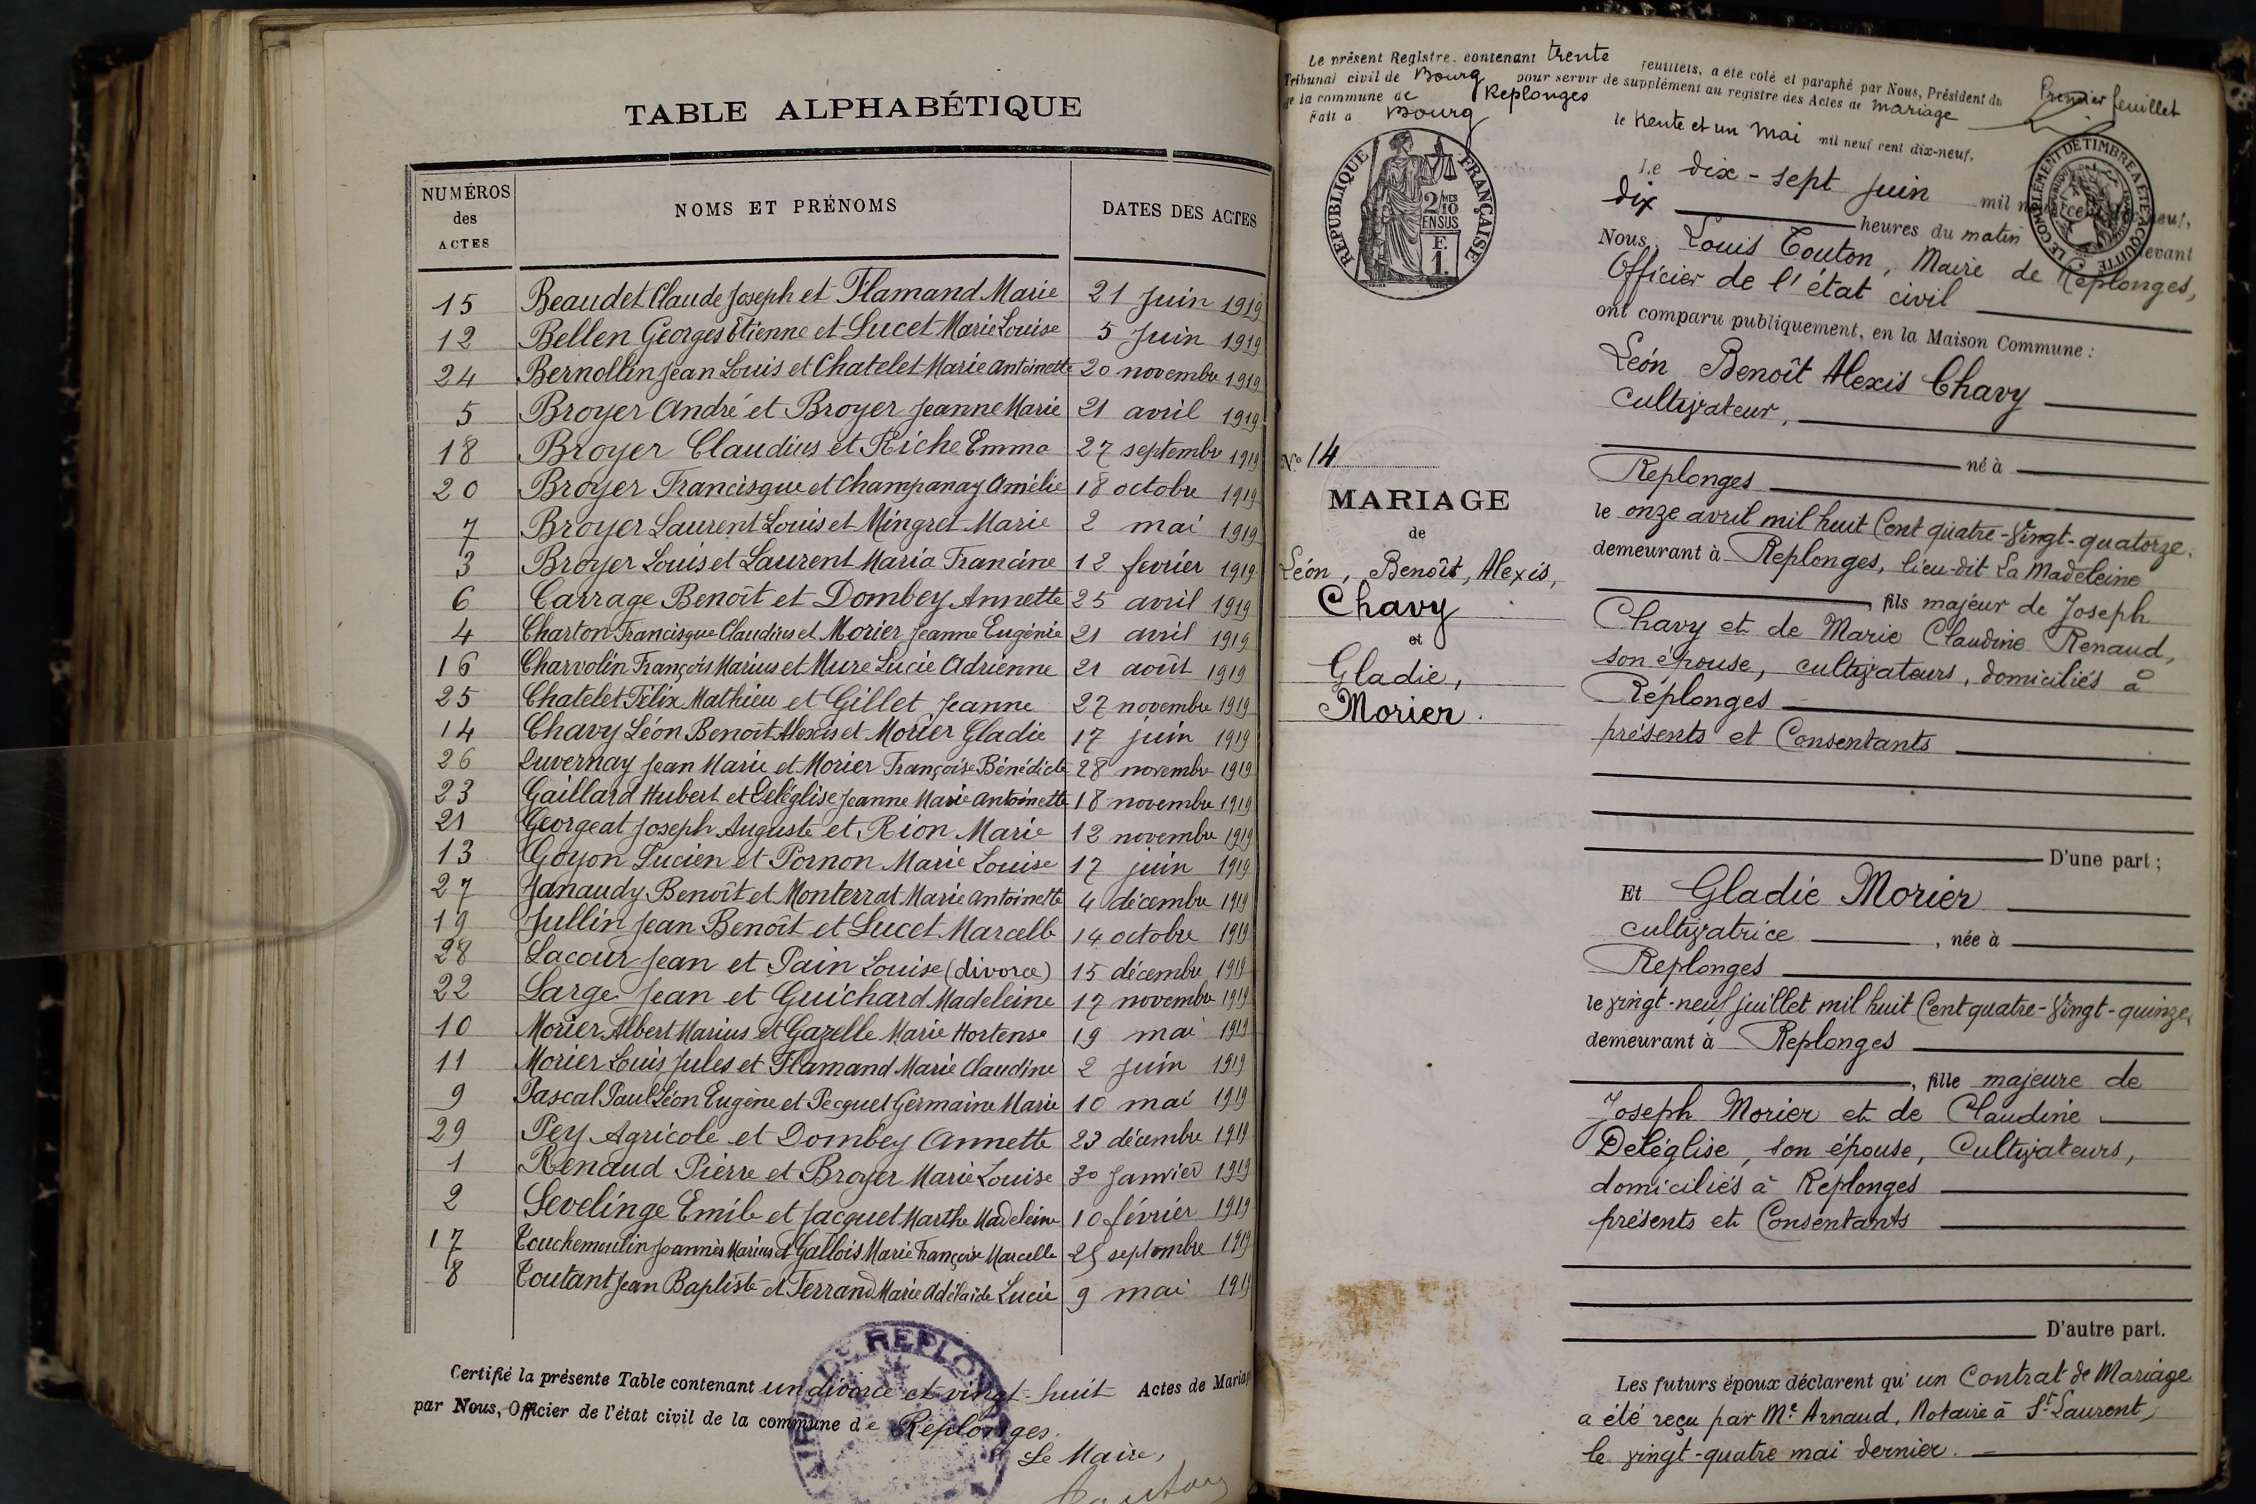 TABLE ALPHABÉTIQUE
NUMÉROS des ACTES
NOMS ET PRÉNOMS
DATES DES ACTES
15 Beaudet Claude Joseph et Flamand Marie 21 Juin 1919
12 Bellen Georges Etienne et Lucet Marie Louise 5 Juin 1919
24 Bernollin Jean Louis et Chatelet Marie Antoinette 20 novembre 1919
5 Broyer André et Broyer Jeanne Marie 21 avril 1919
18 Broyer Claudius et Riche Emma 27 septembre 1919
20 Broyer Francisque et Champanay Amélie 18 octobre 1919
7 Broyer Laurent Louis et Mingret Marie 2 mai 1919
3 Broyer Louis et Laurent Maria Francine 12 fevrier 1919
6 Carrage Benoît et Dombey Annette 25 avril 1919
4 Charton Francisque Claudius et Morier Jeanne Eugénie 21 avril 1919
16 Charvolin François Marius et Mure Lucie Adrienne 21 août 1919
25 Chatelet Félix Mathieu et Gillet Jeanne 27 novembre 1919
14 Chavy Léon Benoît Alexis et Morier Gladie 17 juin 1919
26 Duvernay Jean Marie et Morier Françoise Bénédicte 28 novembre 1919
23 Gaillard Hubert et Deléglise Jeanne Marie Antoinette 18 novembre 1919
21 Georgeat Joseph Auguste et Rion Marie 12 novembre 1919
13 Goyon Lucien et Pornon Marie Louise 17 juin 1919
27 Janaudy Benoît et Monterrat Marie Antoinette 4 décembre 1919
19 Jullin Jean Benoît et Lucet Marcelle 14 octobre 1919
28 Lacour Jean et Pain Louise (divorce) 15 décembre 1919
22 Large Jean et Guichard Madeleine 17 novembre 1919
10 Morier Albert Marius et Gazelle Marie Hortense 19 mai 1919
11 Morier Louis Jules et Flamand Marie Claudine 2 Juin 1919
9 Pascal Paul Léon Eugène et Pecquet Germaine Marie 10 mai 1919
29 Pey Agricole et Dombey Annette 23 décembre 1919
1 Renaud Pierre et Broyer Marie Louise 30 Janvier 1919
2 Sevelinge Emile et Jacquet Marthe Madeleine 10 février 1919
17 Touchemoulin Joannès Marius et Gallois Marie Françoise Marcelle 25 septembre 1919
8 Toutant Jean Baptiste et Ferrand Marie Adélaïde Lucie 9 mai 1919
Certifié la présente Table contenant un divorce et vingt-huit Actes de Mariage
par Nous, Officier de l'état civil de la commune de Replonges.
Le Maire,
Le présent Registre, contenant trente feuillets, a été coté et paraphé par Nous, Président du
Tribunal civil de Bourg pour servir de supplément au registre des Actes de mariage
de la commune de Replonges
Fait à Bourg le trente et un mai mil neuf cent dix-neuf.
Premier feuillet
RÉPUBLIQUE FRANÇAISE
2/10 MES EN SUS
F. 1.
LE COMPLÉMENT DE TIMBRE A ÉTÉ ACQUITTÉ
Le dix-sept juin mil neuf cent dix-neuf,
dix heures du matin devant
Nous, Louis Touton, Maire de Replonges,
Officier de l'état civil
ont comparu publiquement, en la Maison Commune :
Léon Benoît Alexis Chavy
cultivateur,
né à
Replonges
le onze avril mil huit Cent quatre-vingt-quatorze.
demeurant à Replonges, lieu-dit La Madeleine
, fils majeur de Joseph
Chavy et de Marie Claudine Renaud,
son épouse, cultivateurs, domiciliés à
Réplonges
présents et Consentants
D'une part ;
No 14
MARIAGE
de
Léon, Benoît, Alexis,
Chavy
et
Gladie,
Morier.
Et Gladie Morier
cultivatrice , née à
Replonges
le vingt-neuf juillet mil huit Cent quatre-vingt-quinze,
demeurant à Replonges
, fille majeure de
Joseph Morier et de Claudine
Deléglise, son épouse, Cultivateurs,
domiciliés à Replonges
présents et Consentants
D'autre part.
Les futurs époux déclarent qu'un Contrat de Mariage
a été reçu par Me Arnaud, Notaire à St Laurent,
le vingt-quatre mai dernier.